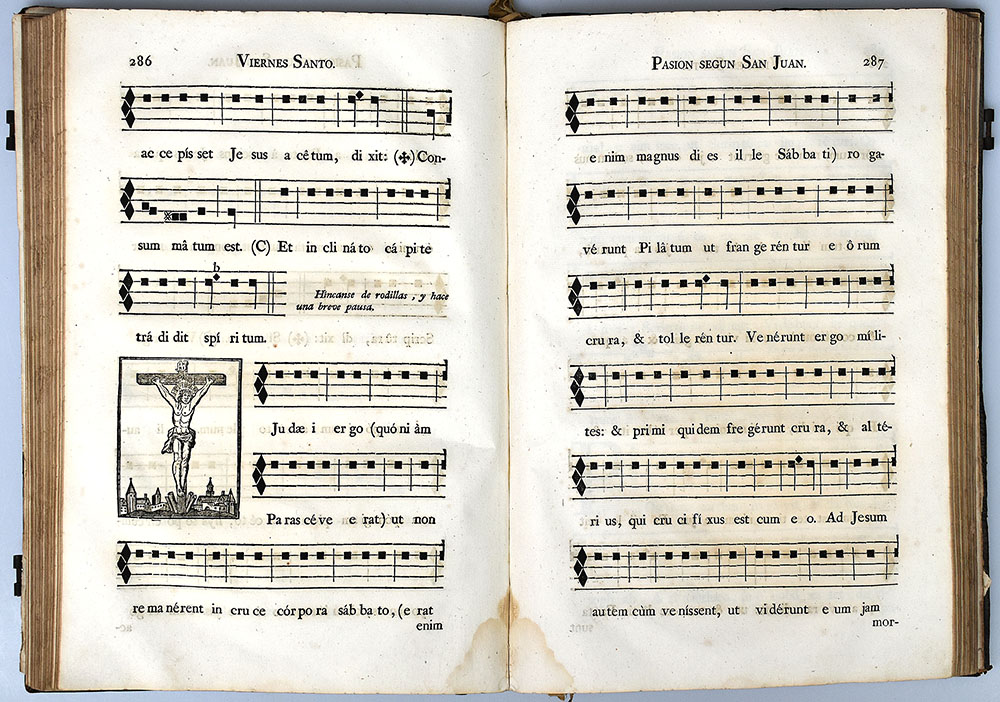 286 VIERNES SANTO.
ac ce pís set Je sus a cêtum, di xit: (✠) Con-
sum mâ tum est. (C) Et in cli ná to cá pi te
b
Hincanse de rodillas, y hace
una breve pausa.
trá di dit spí ri tum.
Ju dæ i er go (quó ni àm
Pa ras cé ve e rat) ut non
re ma nérent in cru ce cór po ra sáb ba to, (e rat
enim
PASION SEGUN SAN JUAN. 287
e nim magnus di es il le Sáb ba ti) ro ga-
vé runt Pi lâ tum ut fran ge rén tur e ô rum
cru ra, & tol le rén tur. Ve nérunt er go mí li-
tes: & pri mi qui dem fre gérunt cru ra, & al té-
ri us, qui cru ci fí xus est cum e o. Ad Jesum
au tem cùm ve níssent, ut vi dérunt e um jam
mor-